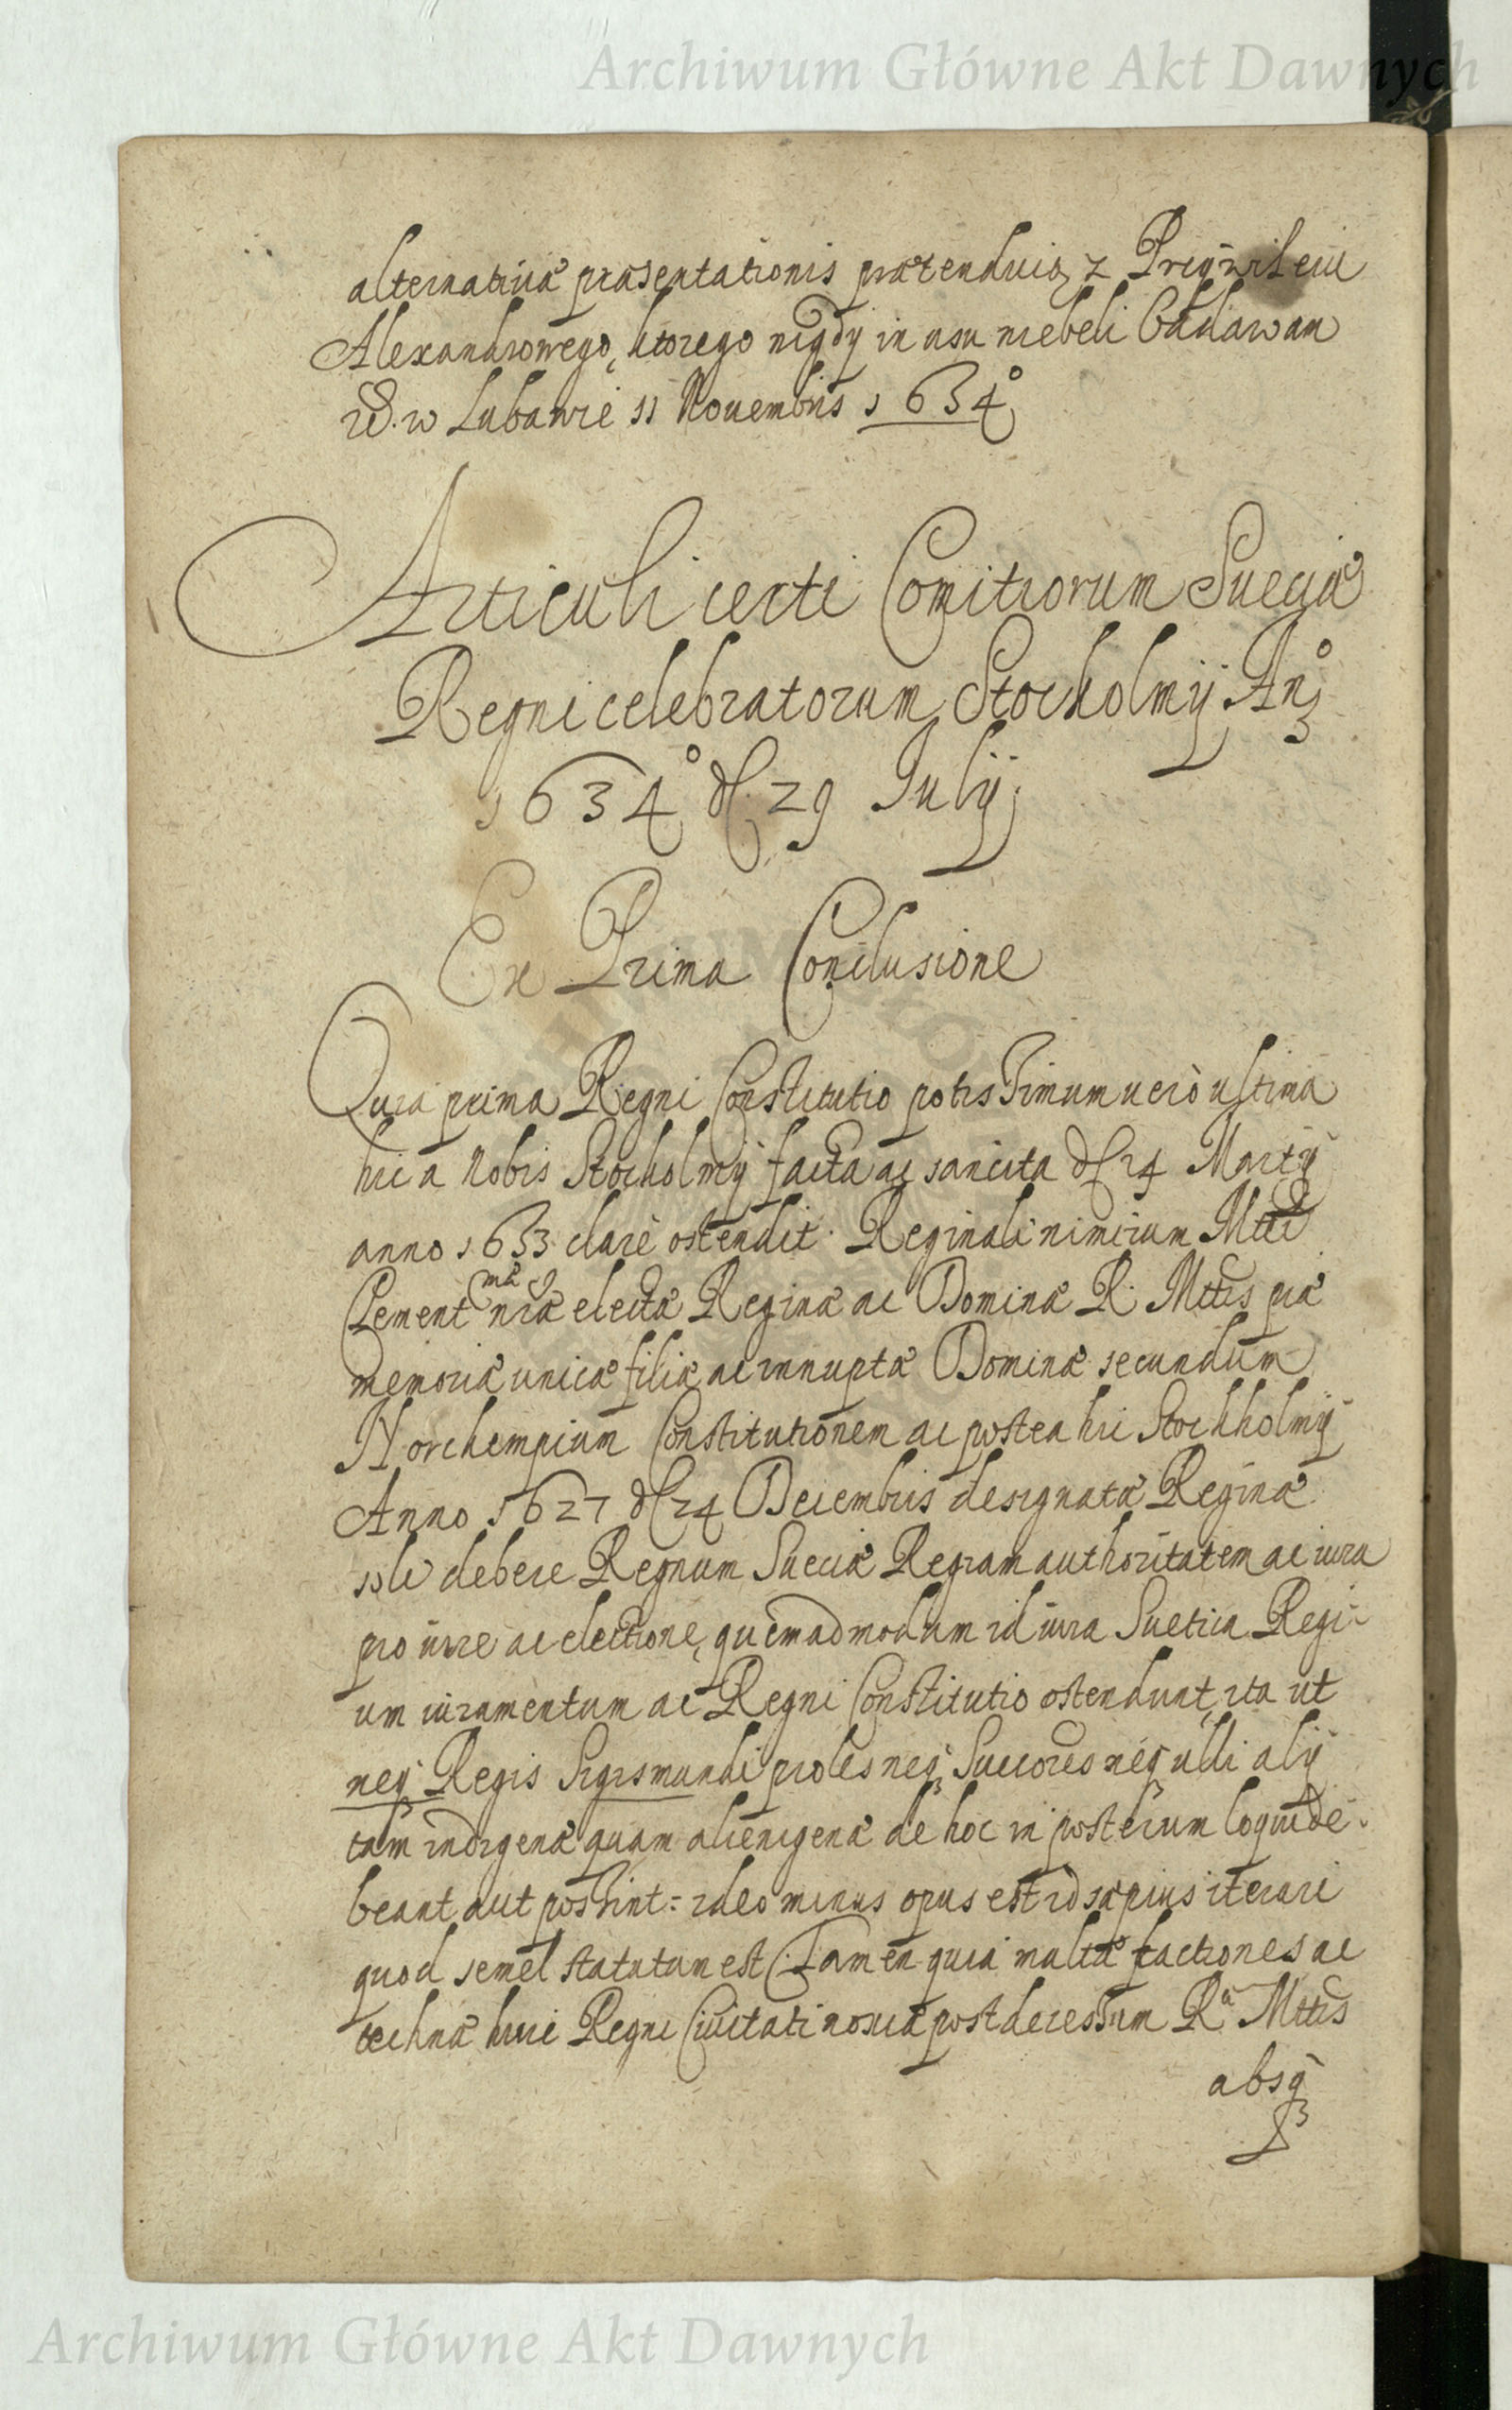 Archiwum Główne Akt Dawnych
alternatiuæ præsentationis prætenduią z Przywileiu
Alexandrowego, ktorego nigdy in usu niebeli
w Lubawie 11 Nouembris 1634°
Articuli certi Comitiorum Sueciæ
Regni celebratorum Stockholmÿ An°
1634° d. 29 Julÿ
Ex Prima Conclusione
Quia prima Regni Constitutio potissimum uerò ultima
hic a Nobis Stockholmÿ facta ac sancita d. 14 Martÿ
anno 1633 clarè ostendit. Reginali nimirum Mtti
Clement^mæ nræ electæ Reginæ ac Dominæ R. Mttis piæ
memoriæ unicæ filiæ ac innuptæ Dominæ secundum
Norchempium Constitutionem ac postea hic Stockholmÿ
Anno 1627 d. 24 Decembris designatæ Reginæ
soli debere Regnum Sueciæ Regiam authoritatem ac iura
pro iure ac electione, quemadmodum id iura Suetica Regi-
um iuramentum ac Regni Constitutio ostendunt, ita ut
neq Regis Sigismundi proles neq Succores neq ulli alÿ
tam indigenæ quam alienigenæ de hoc in posterum loqui de-
beant aut possint: ideo minus opus est id sæpius iterari
quod semel statutum est. Tamen quia multæ factiones ac
technæ huic Regni Ciuitati noxiæ post decessum R^æ Mttis
absq
Archiwum Główne Akt Dawnych